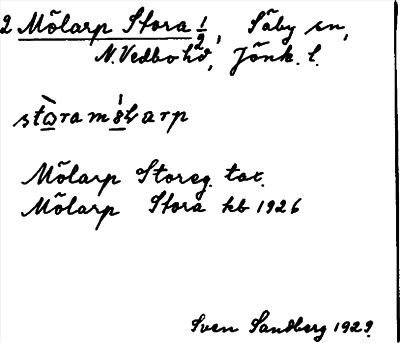 2 Mölarp Stora 1/2, Säby sn,
N. Vedbo hd, Jönk. l.
stòramö́larp
Mölarp Storeg. tax.
Mölarp Stora kb 1926
Sven Sandberg 1929.